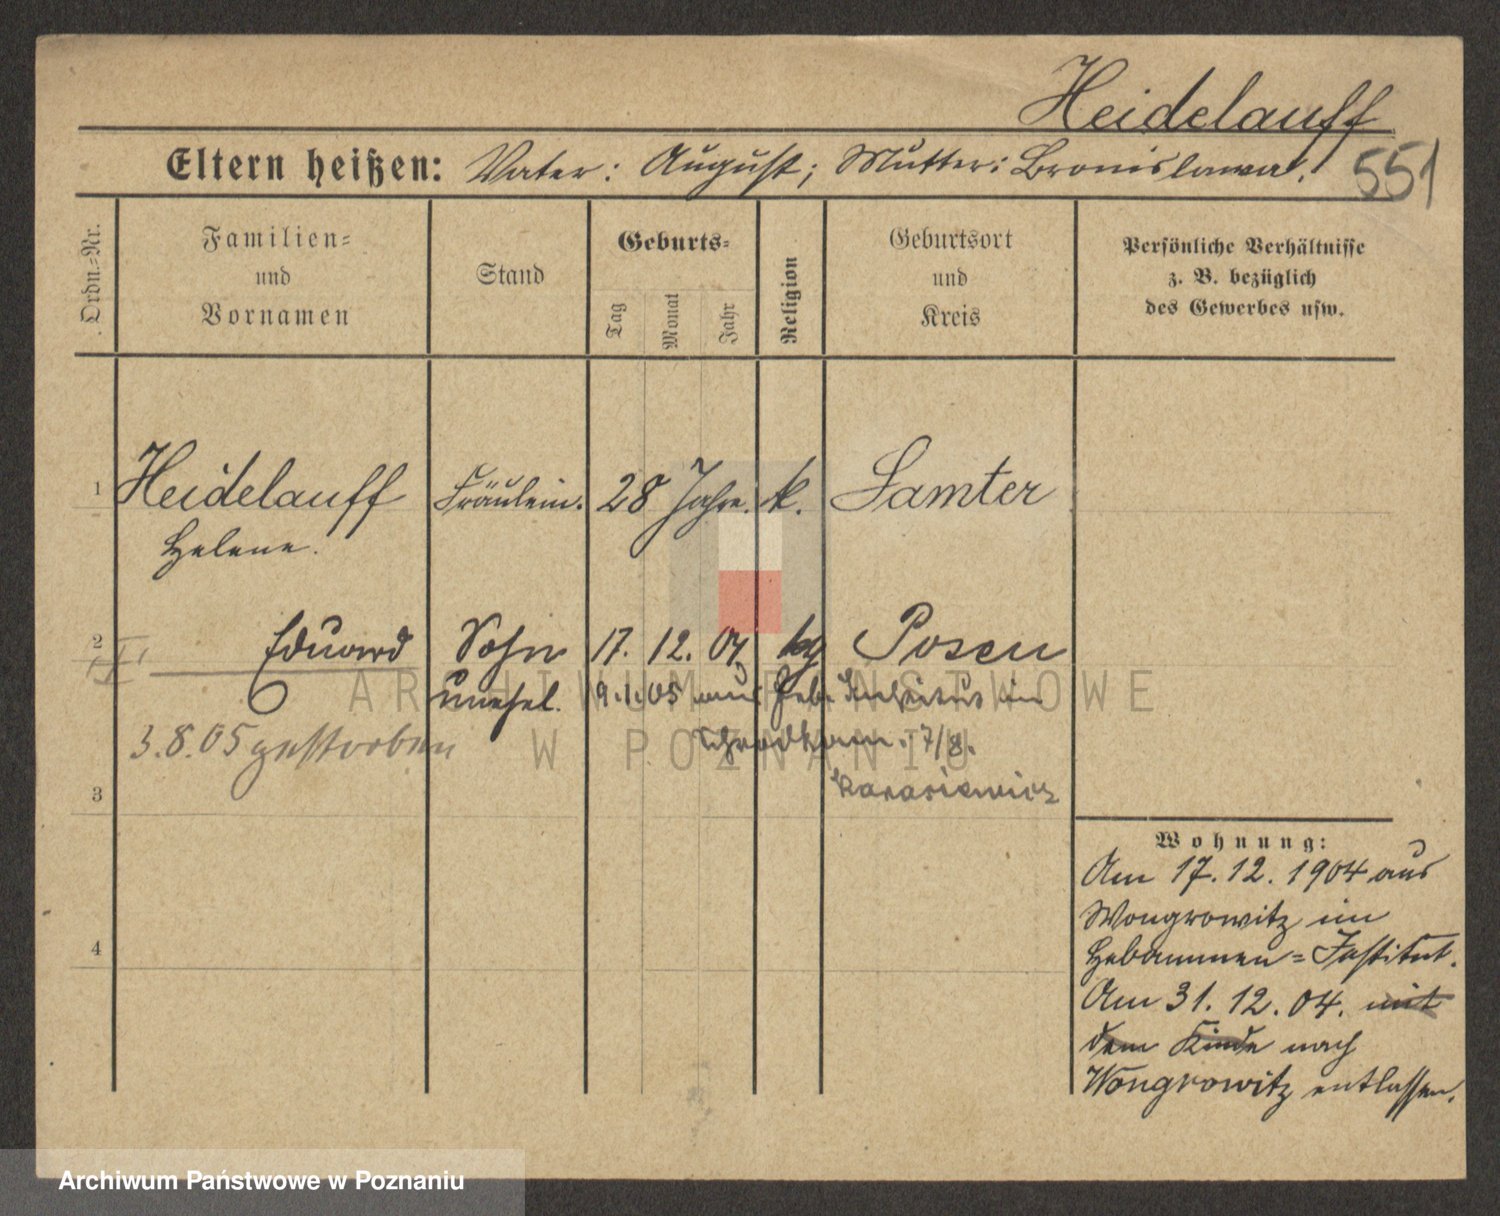 Heidelauff
Eltern heißen: Vater: August; Mutter: Bronislawa.
551
Ordn.-Nr.
Familien-
und
Vornamen
Stand
Geburts-
Tag
Monat
Jahr
Religion
Geburtsort
und
Kreis
Persönliche Verhältnisse
z. B. bezüglich
des Gewerbes usw.
1 Heidelauff Fräulein. 28 Jahre. k. Samter
Helene.
2 Eduard Sohn 17. 12. 04 kg Posen
unehel. 9.1.05 aus Heb. Institut in
7/8.
3.8.05 gestorben
Karasiewicz
3
Wohnung:
Am 17.12.1904 aus
Wongrowitz im
Hebammen-Institut.
4
Am 31.12.04. mit
dem Kinde nach
Wongrowitz entlassen.
ARCHIWUM PAŃSTWOWE
W POZNANIU
Archiwum Państwowe w Poznaniu